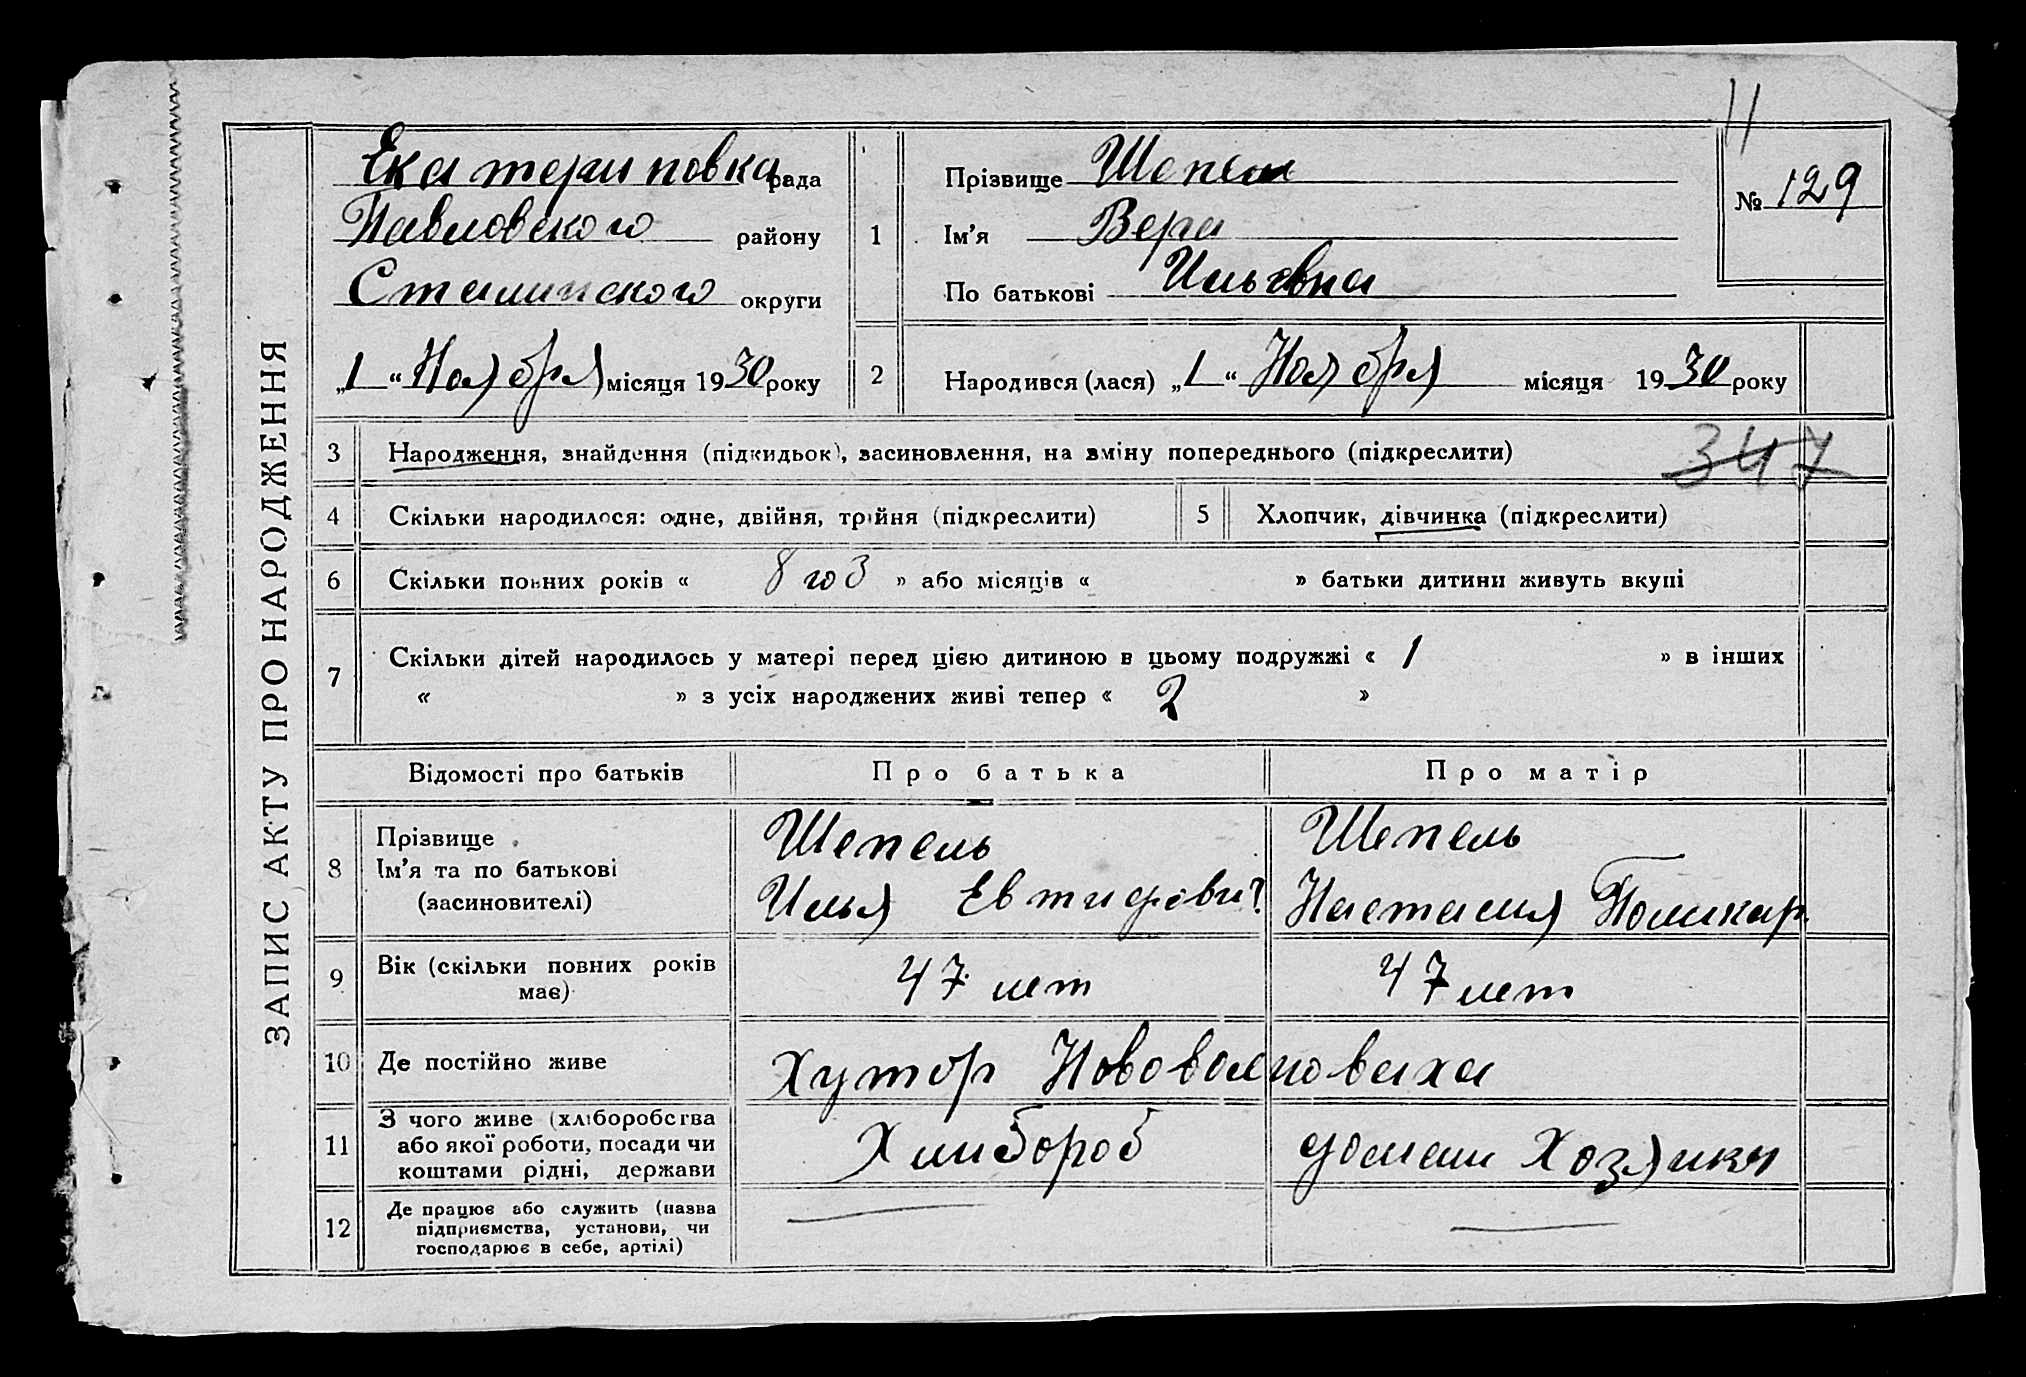 ЗАПИС АКТУ ПРО НАРОДЖЕННЯ
11
Екатериновка рада
Павловского району
Сталинского округи
„1“ Ноября місяця 1930 року
1
Прізвище Шепель
Ім’я Вера
По батькові Ильевна
№ 129
2
Народився (лася) „1“ Ноября місяця 1930 року
3 Народження, знайдення (підкидьок), засиновлення, на зміну попереднього (підкреслити)
347
4 Скільки народилося: одне, двійня, трійня (підкреслити)
5 Хлопчик, дівчинка (підкреслити)
6 Скільки повних років « 8 год » або місяців « » батьки дитини живуть вкупі
7 Скільки дітей народилось у матері перед цією дитиною в цьому подружжі « 1 » в інших
« » з усіх народжених живі тепер « 2 »
Відомості про батьків
Про батька
Про матір
8 Прізвище
Ім’я та по батькові
(засиновителі)
Шепель
Илья
Шепель
Настасия Поликар
9 Вік (скільки повних років
має)
47 лет
47 лет
10 Де постійно живе
Хутор
11 З чого живе (хліборобства
або якої роботи, посади чи
коштами рідні, держави
Хлибороб
домаш Хозяйка
12 Де працює або служить (назва
підприємства, установи, чи
господарює в себе, артілі)